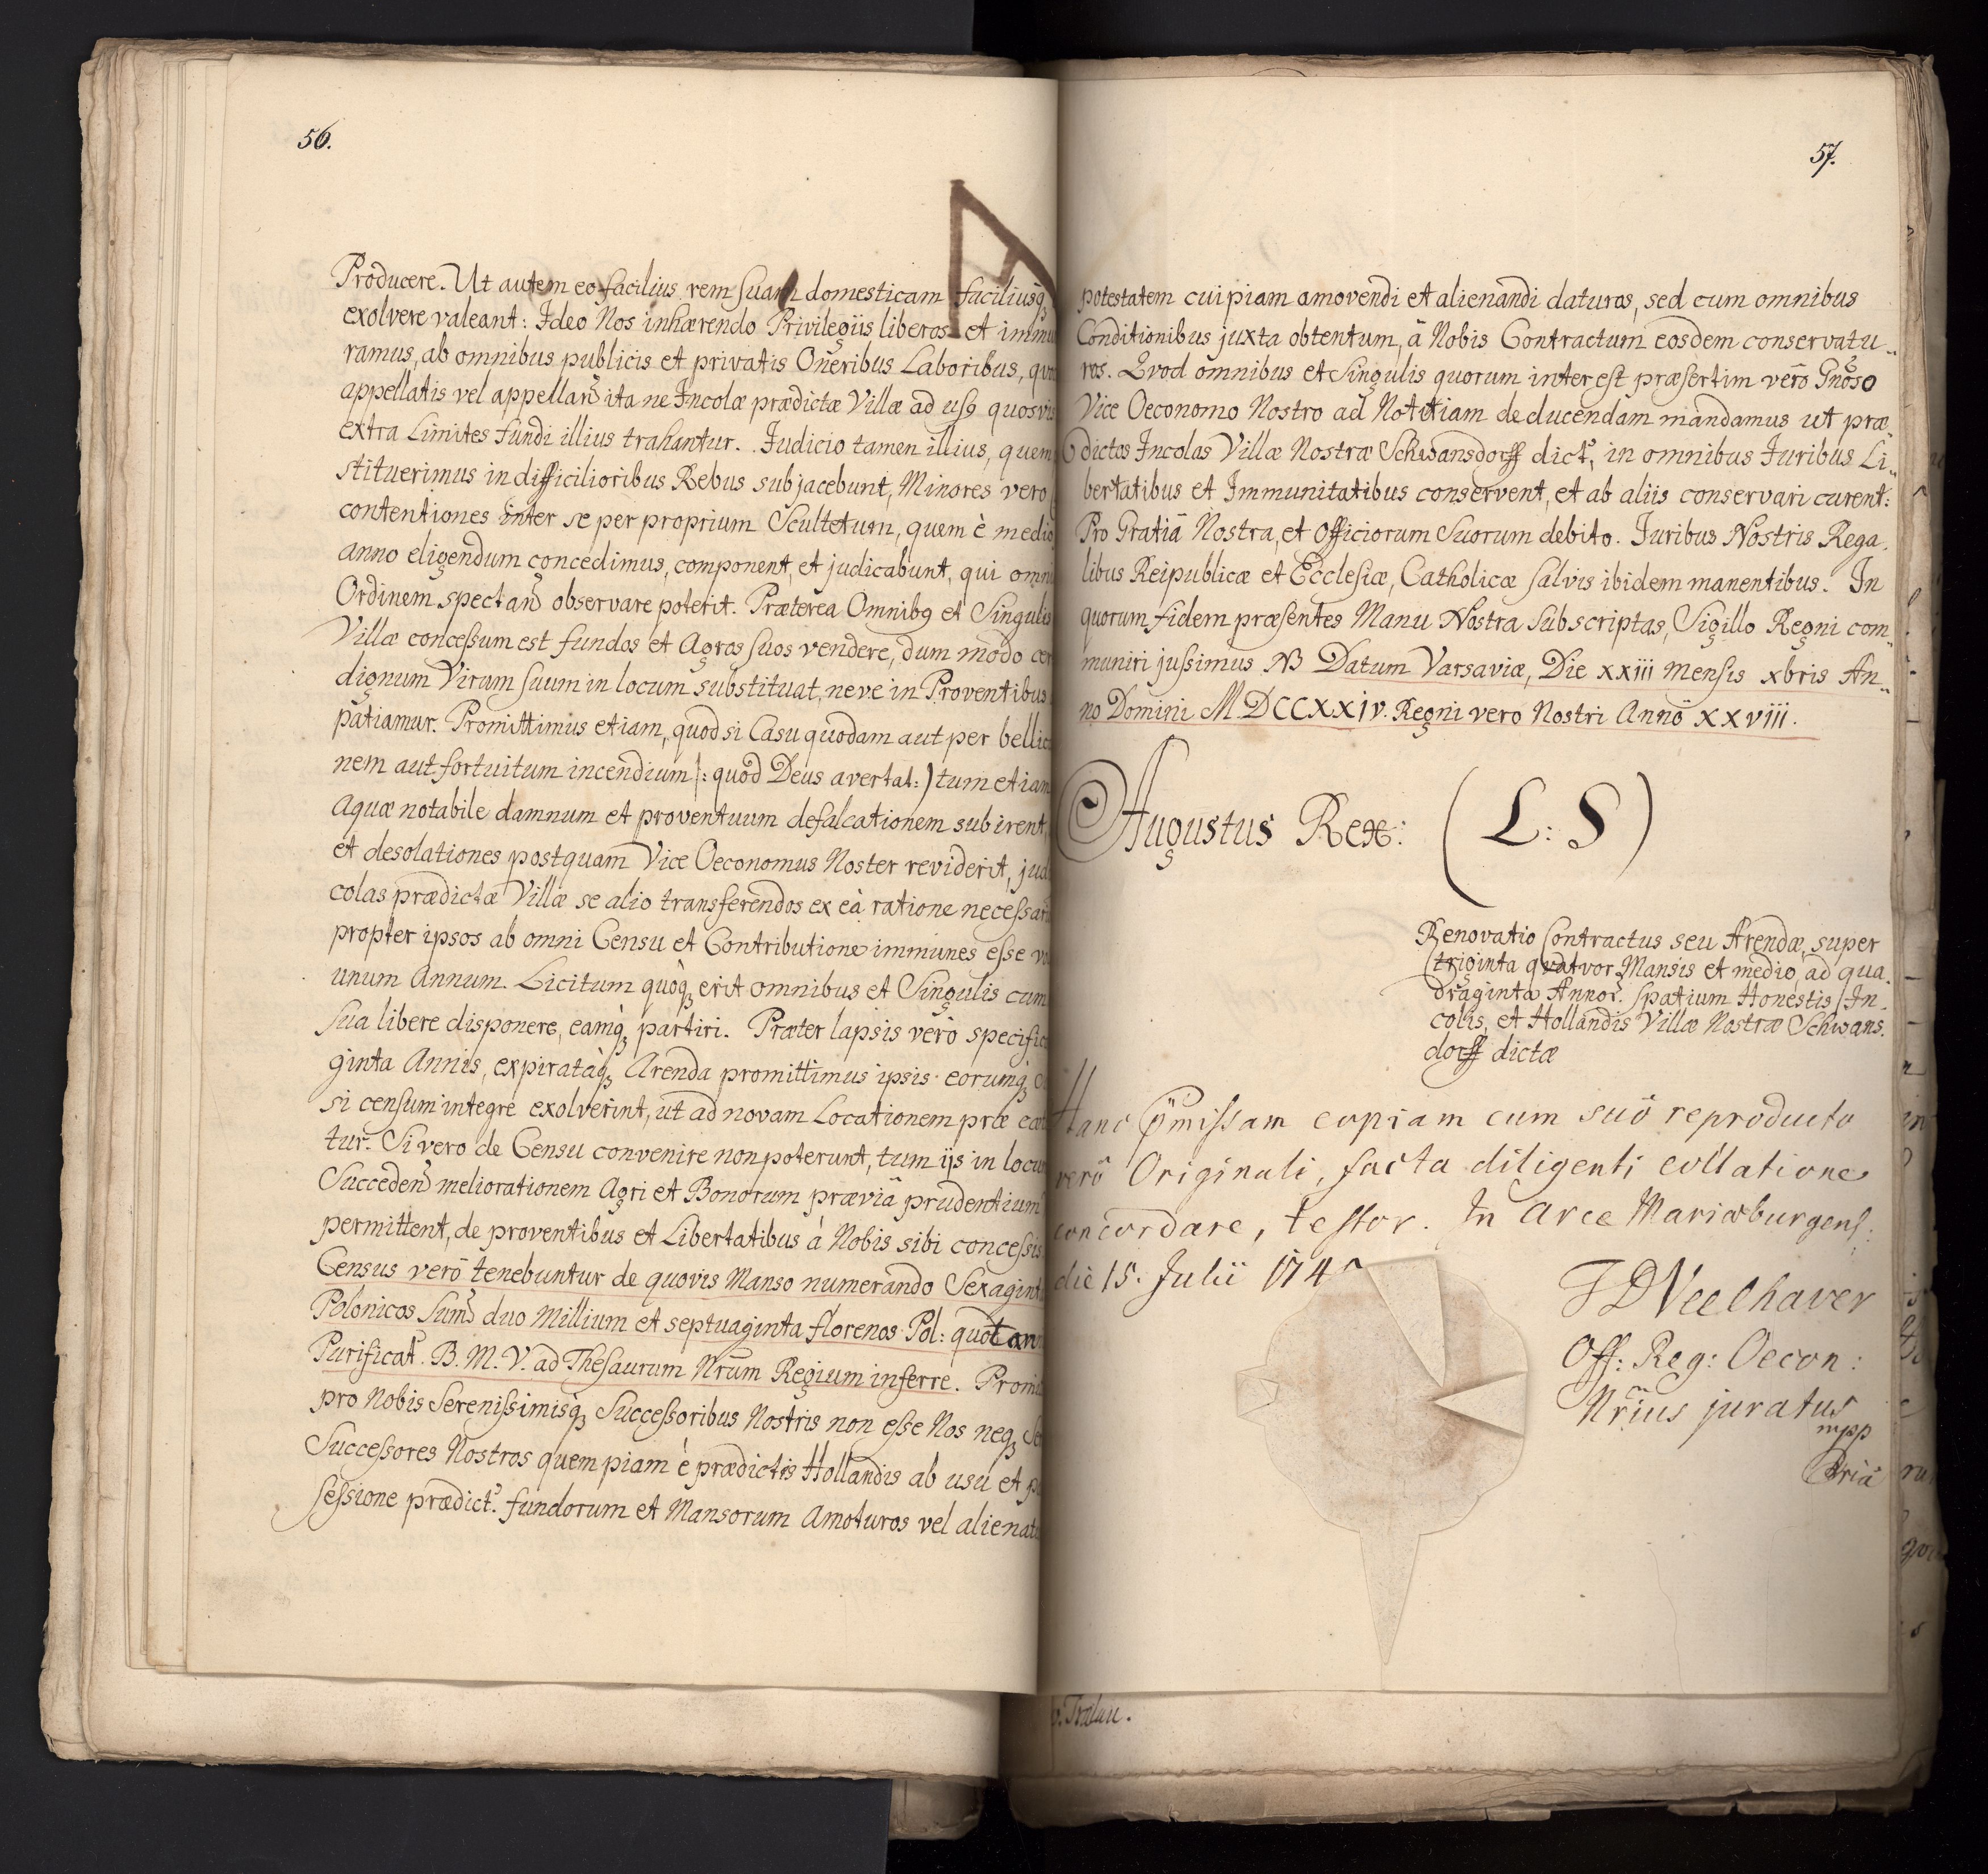 56.
Producere. Ut autem eo facilius rem suam domesticam faciliusq3
exolvere valeant: Ideo Nos inhærendo Privilegiis liberos et immu
ramus, ab omnibus publicis et privatis Oneribus Laboribus, quo
appellatis vel appellan̄ ita ne Incolæ prædictæ Villæ ad us9 quosvis
extra Limites fundi illius trahantur. Judicio tamen illius, quem
stituerimus in difficilioribus Rebus subjacebunt, Minores vero
contentiones inter se per proprium Scultetum, quem è medio
anno eligendum concedimus, component, et judicabunt, qui omni
Ordinem spectan̄ observare poterit. Præterea Omnib9 et Singulis
Villæ concessum est fundos et Agros suos vendere, dum modo cer
dignum Virum suum in locum substituat, ne ve in Proventibus
patiamur. Promittimus etiam, quod si Casu quodam aut per bellic
nem aut fortuitum incendium |: quod Deus avertat:) tum etiam
Aquæ notabile damnum et proventuum defalcationem subirent,
et desolationes postquam Vice Oeconomus Noster reviderit, jud
colas prædictæ Villæ se alio transferendos ex eà ratione necessari
propter ipsos ab omni Censu et Contributione immunes esse vo
unum Annum. Licitum quòq3 erit omnibus et Singulis cum
sua libere disponere, eamq3 partiri. Præter lapsis verò specific
ginta Annis, expiratàq3 Arenda promittimus ipsis eorumq3
si censum integrè exolverint, ut ad novam Locationem præ cæt
tur. Si vero de Censu convenire non poterunt, tum ijs in locu
Succeden̄ meliorationem Agri et Bonorum præviâ prudentium
permittent, de proventibus et Libertatibus à Nobis sibi concessis
Census verò tenebuntur de quovis Manso numerando Sexagint
Polonicos Sum̄ duo Millium et septuaginta florenos Pol: quot ann
Purificat. B. M. V. ad Thesaurum Nrum Regium inferre. Promit
pro Nobis Serenissimisq3 Successoribus Nostris non esse Nos neq3 Se
Successores Nostros quempiam è prædictis Hollandis ab usu et po
sessione prædict. fundorum et Mansorum Amoturos vel alienatu
57.
potestatem cuipiam amovendi et alienandi daturos, sed cum omnibus
Conditionibus juxta obtentum, â Nobis Contractum eosdem conservatu„
ros. Qvod omnibus et Singulis quorum interest præsertim verò Gnoso
Vice Oeconomo Nostro ad Notitiam deducendam mandamus ut præ„
dictos Incolas Villæ Nostræ Schwansdorff dict, in omnibus Juribus Li„
bertatibus et Immunitatibus conservent, et ab aliis conservari curent:
Pro Gratiâ Nostra, et Officiorum Suorum debito. Juribus Nostris Rega„
libus Reipublicæ et Ecclesiæ, Catholicæ salvis ibidem manentibus. In
quorum fidem præsentes Manu Nostra Subscriptas, Sigillo Regni com„
muniri jussimus NB Datum Varsaviæ, Die xxiii Mensis xbris An„
no Domini MDCCXXIV. Regni vero Nostri Annô xxviii.
Augustus Rex: (L: S)
Renovatio Contractus seu Arendæ, super
triginta qvatvor Mansis et medio, ad qua„
draginta Annor. spatium Honestis In„
colis, et Hollandis Villæ Nostræ Schwans„
dorff dictæ
Hanc pmissam copiam cum suô reproducto
verô Originali, facta diligenti collatione
concordare, testor. In Arce Mariæburgens:
die 15. Julii 174
Off: Reg: Oecon:
Nrius juratus
mpp